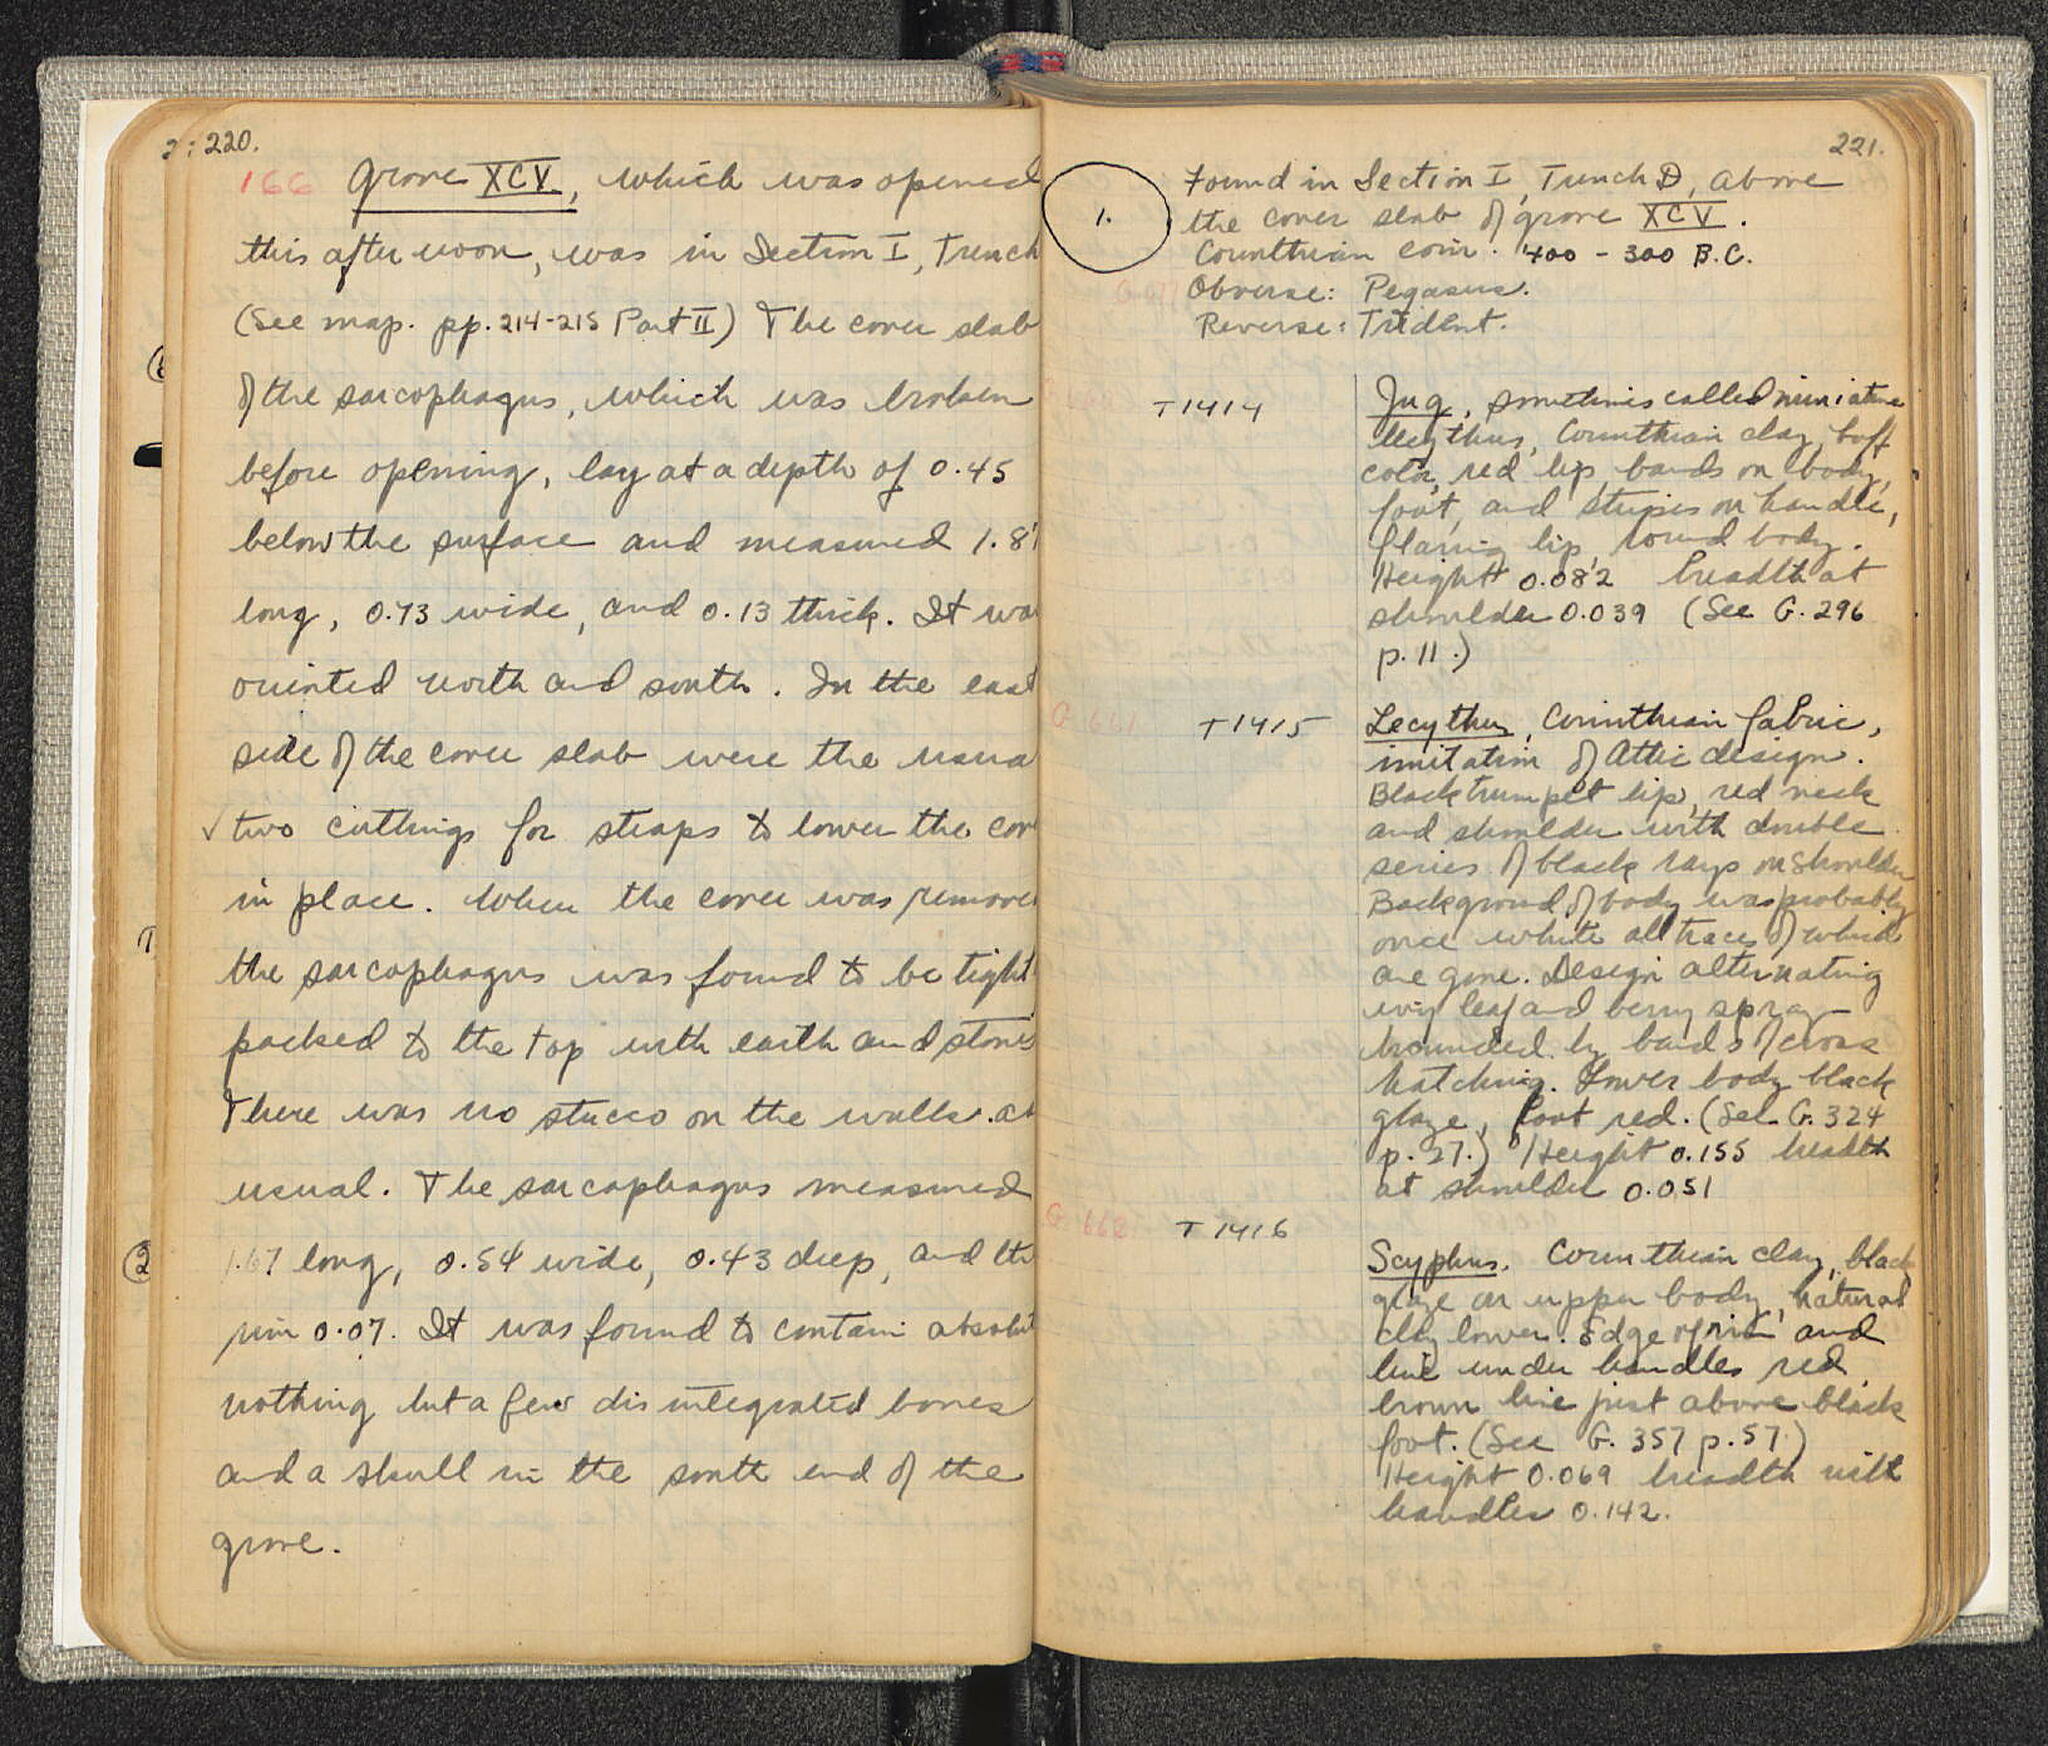 220.
166 Grave XCV, which was opened
this afternoon, was in Section I, Trench
(See map. pp. 214-215 Part II) The cover slab
of the sarcophagus, which was broken
before opening, lay at a depth of 0.45
below the surface and measured 1.8
long, 0.73 wide, and 0.13 thick. It was
oriented north and south. In the east
side of the cover slab were the usua
✓ two cuttings for straps to lower the cov
in place. When the cover was remove
the sarcophagus was found to be tight
packed to the top with earth and stones
There was no stucco on the walls as
usual. The sarcophagus measured
1.67 long, 0.54 wide, 0.43 deep, and the
rim 0.07. It was found to contain absolut
nothing but a few disintegrated bones
and a skull in the south end of the
grave.
2
221.
1.
Found in Section I, Trench D, above
the cover slab of grave XCV.
Corinthian coin. 400 - 300 B.C.
Obverse: Pegasus.
Reverse: Trident.
T1414
Jug, sometimes called miniature
lecythus, Corinthian clay, buff
color, red lip, bands on body,
foot, and stripes on handle,
flaring lip, round body.
Height 0.082 breadth at
shoulder 0.039 (See G. 296
p. 11.)
G 661 T1415
Lecythus, Corinthian fabric,
imitation of Attic design.
Black trumpet lip, red neck
and shoulder with double
series of black rays on shoulder
Background of body was probably
once white all traces of which
are gone. Design alternating
ivy leaf and berry spray
bounded by bands of cross
hatching. Lower body black
glaze, foot red. (See G. 324
p. 27.) Height 0.155 breadth
at shoulder 0.051
G. 662 T1416
Scyphus. Corinthian clay, black
glaze on upper body, natural
clay lower. Edge of rim and
line under handles red,
brown line just above black
foot. (See G. 357 p. 57.)
Height 0.069 breadth with
handles 0.142.